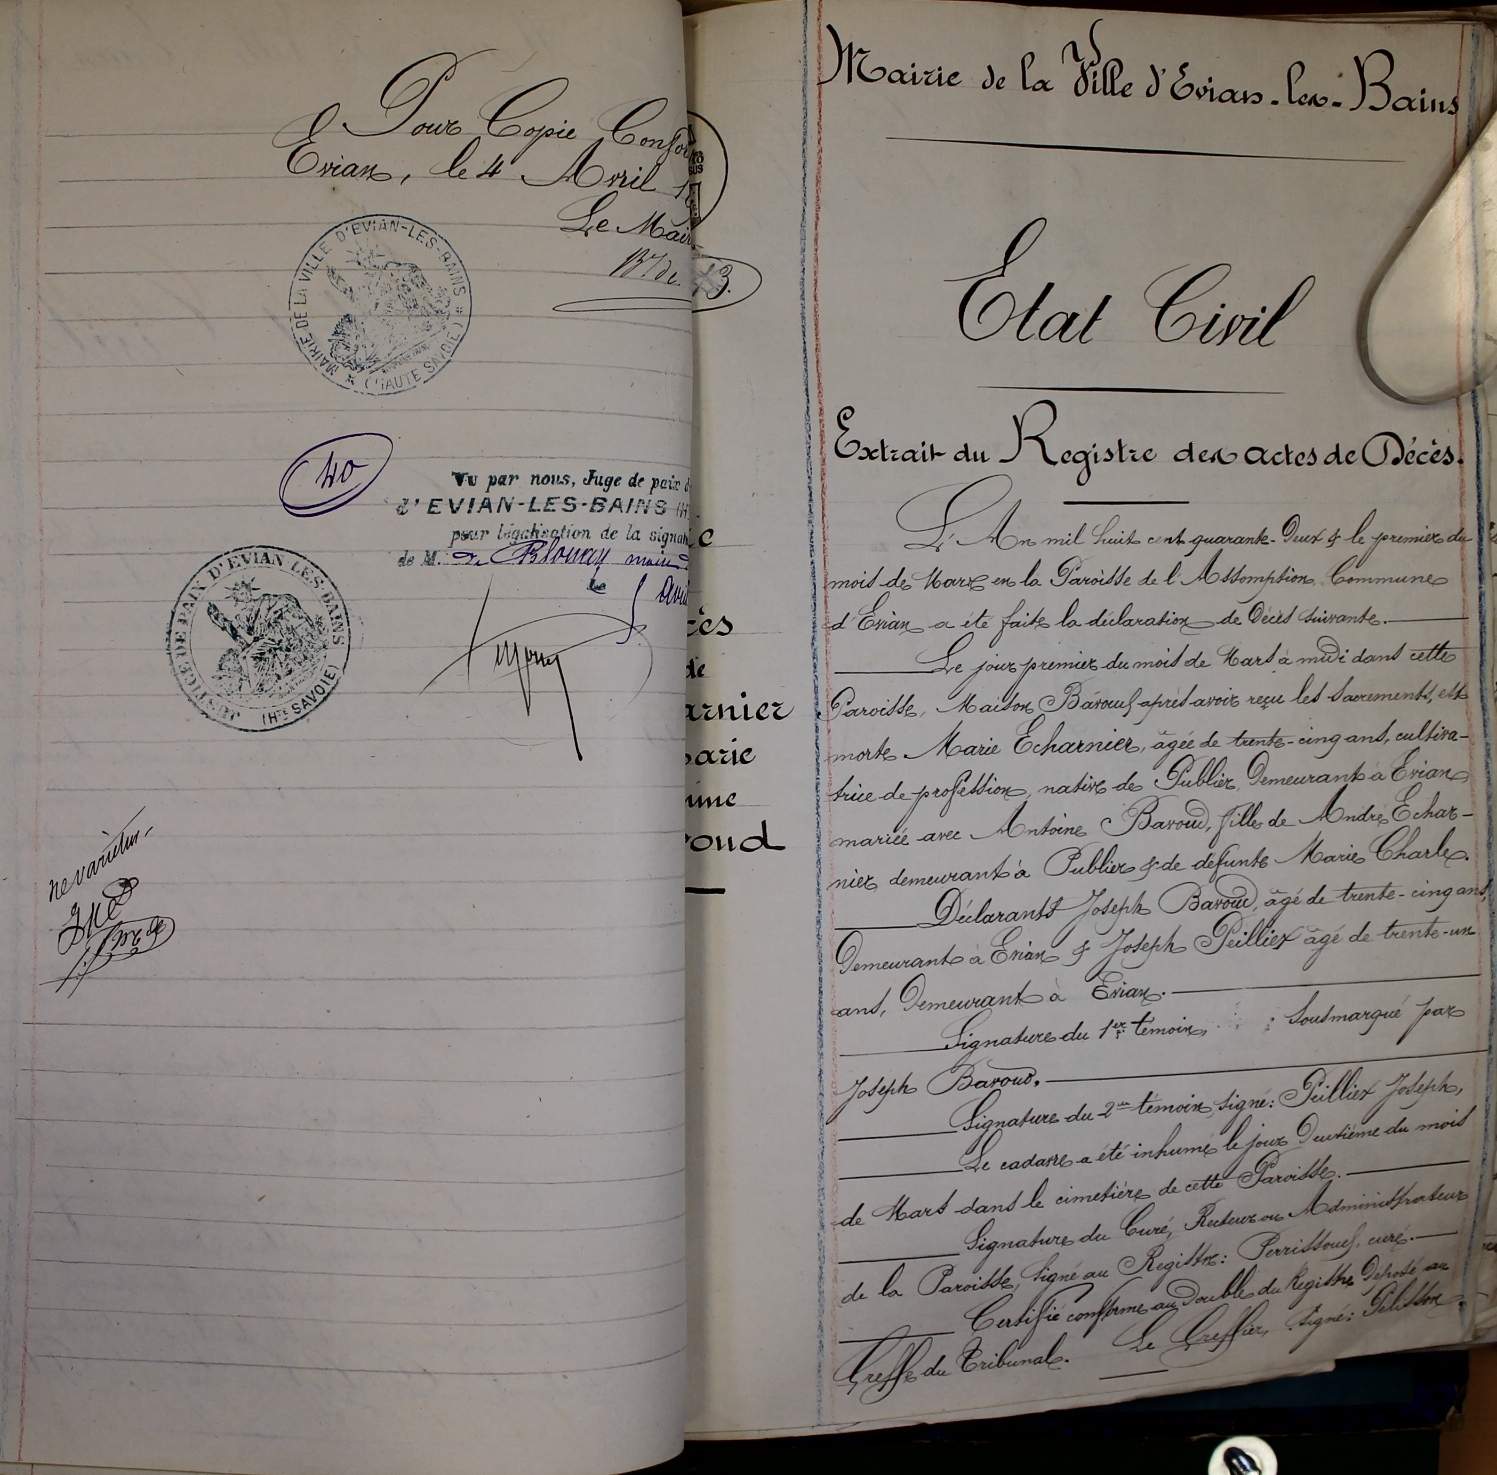 Pour Copie Confor
Evian, le 4 Avril 1
Le Mair
MAIRIE DE LA VILLE D'EVIAN-LES-BAINS
(HAUTE SAVOIE)
40
Vu par nous, Juge de paix d
d'EVIAN-LES-BAINS (H
pour légalisation de la signat
de M. de Blonay maire d
Le 5 avril
JUSTICE DE PAIX D'EVIAN LES-BAINS
(Hte SAVOIE)
ne varietur
cès
de
arnier
arie
me
oud
Mairie de la Ville d'Evian-les-Bains
Etat Civil
Extrait du Registre des actes de Décès.
L'An mil huit cent quarante-Deux & le premier du
mois de Mars en la Paroisse de l'Assomption Commune
d'Evian a été faite la déclaration de Décès suivante.
Le jour premier du mois de Mars à midi dans cette
Paroisse, Maison Bavoux après avoir reçu les Sacrements, est
morte Marie Echarnier, âgée de trente-cinq ans, cultiva-
trice de profession, native de Publier, Demeurant à Evian,
mariée avec Antoine Bavoud, fille de André Echar-
nier demeurant à Publier & de defunte Marie Charles.
Déclarants Joseph Bavoud, âgé de trente-cinq ans,
Demeurant à Evian & Joseph Peillex âgé de trente-un
ans, Demeurant à Evian.
Signature du 1er témoin, Sousmarqué par
Joseph Bavoud.
Signature du 2me témoin, signé: Peillex Joseph,
Le cadavre a été inhumé le jour Deuxième du mois
de Mars dans le cimetière de cette Paroisse.
Signature du Curé, Recteur ou Administrateur
de la Paroisse, signé au Registre: curé.
Certifié conforme au Double du Registre Déposé au
Greffe du Tribunal. Le Greffier, signé: Pelisson.